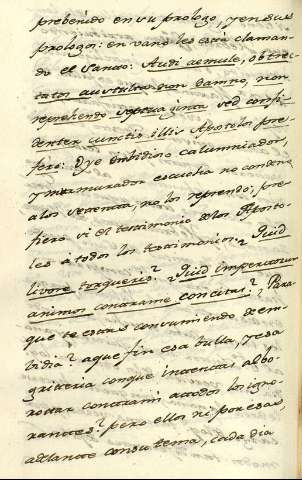 probeendo en su prologo, y en sus
prologos: en vano les está claman-
do el Santo: Audi aemule, obtrec-
tator ausculta: non damno, non
reprehendo septuaginta sed confi-
denter cunctis illis Apostolos pre-
fero: Oye embidioso calumniador,
y murmurador escucha no condeno
a los setenta, no los reprendo; pre-
fiero si el testimonio de los Aposto-
les a todos los testimonios. Quid
livore torqueris? Quid imperitorum
animos contra me concitas? Para
que te estas consumiendo de em-
bidia? a que fin esa bulla, y esa
griteria con que intentas albo-
rotar contra mi a todos los igno-
rantes? pero ellos ni por esas,
adelante con su tema, cada dia